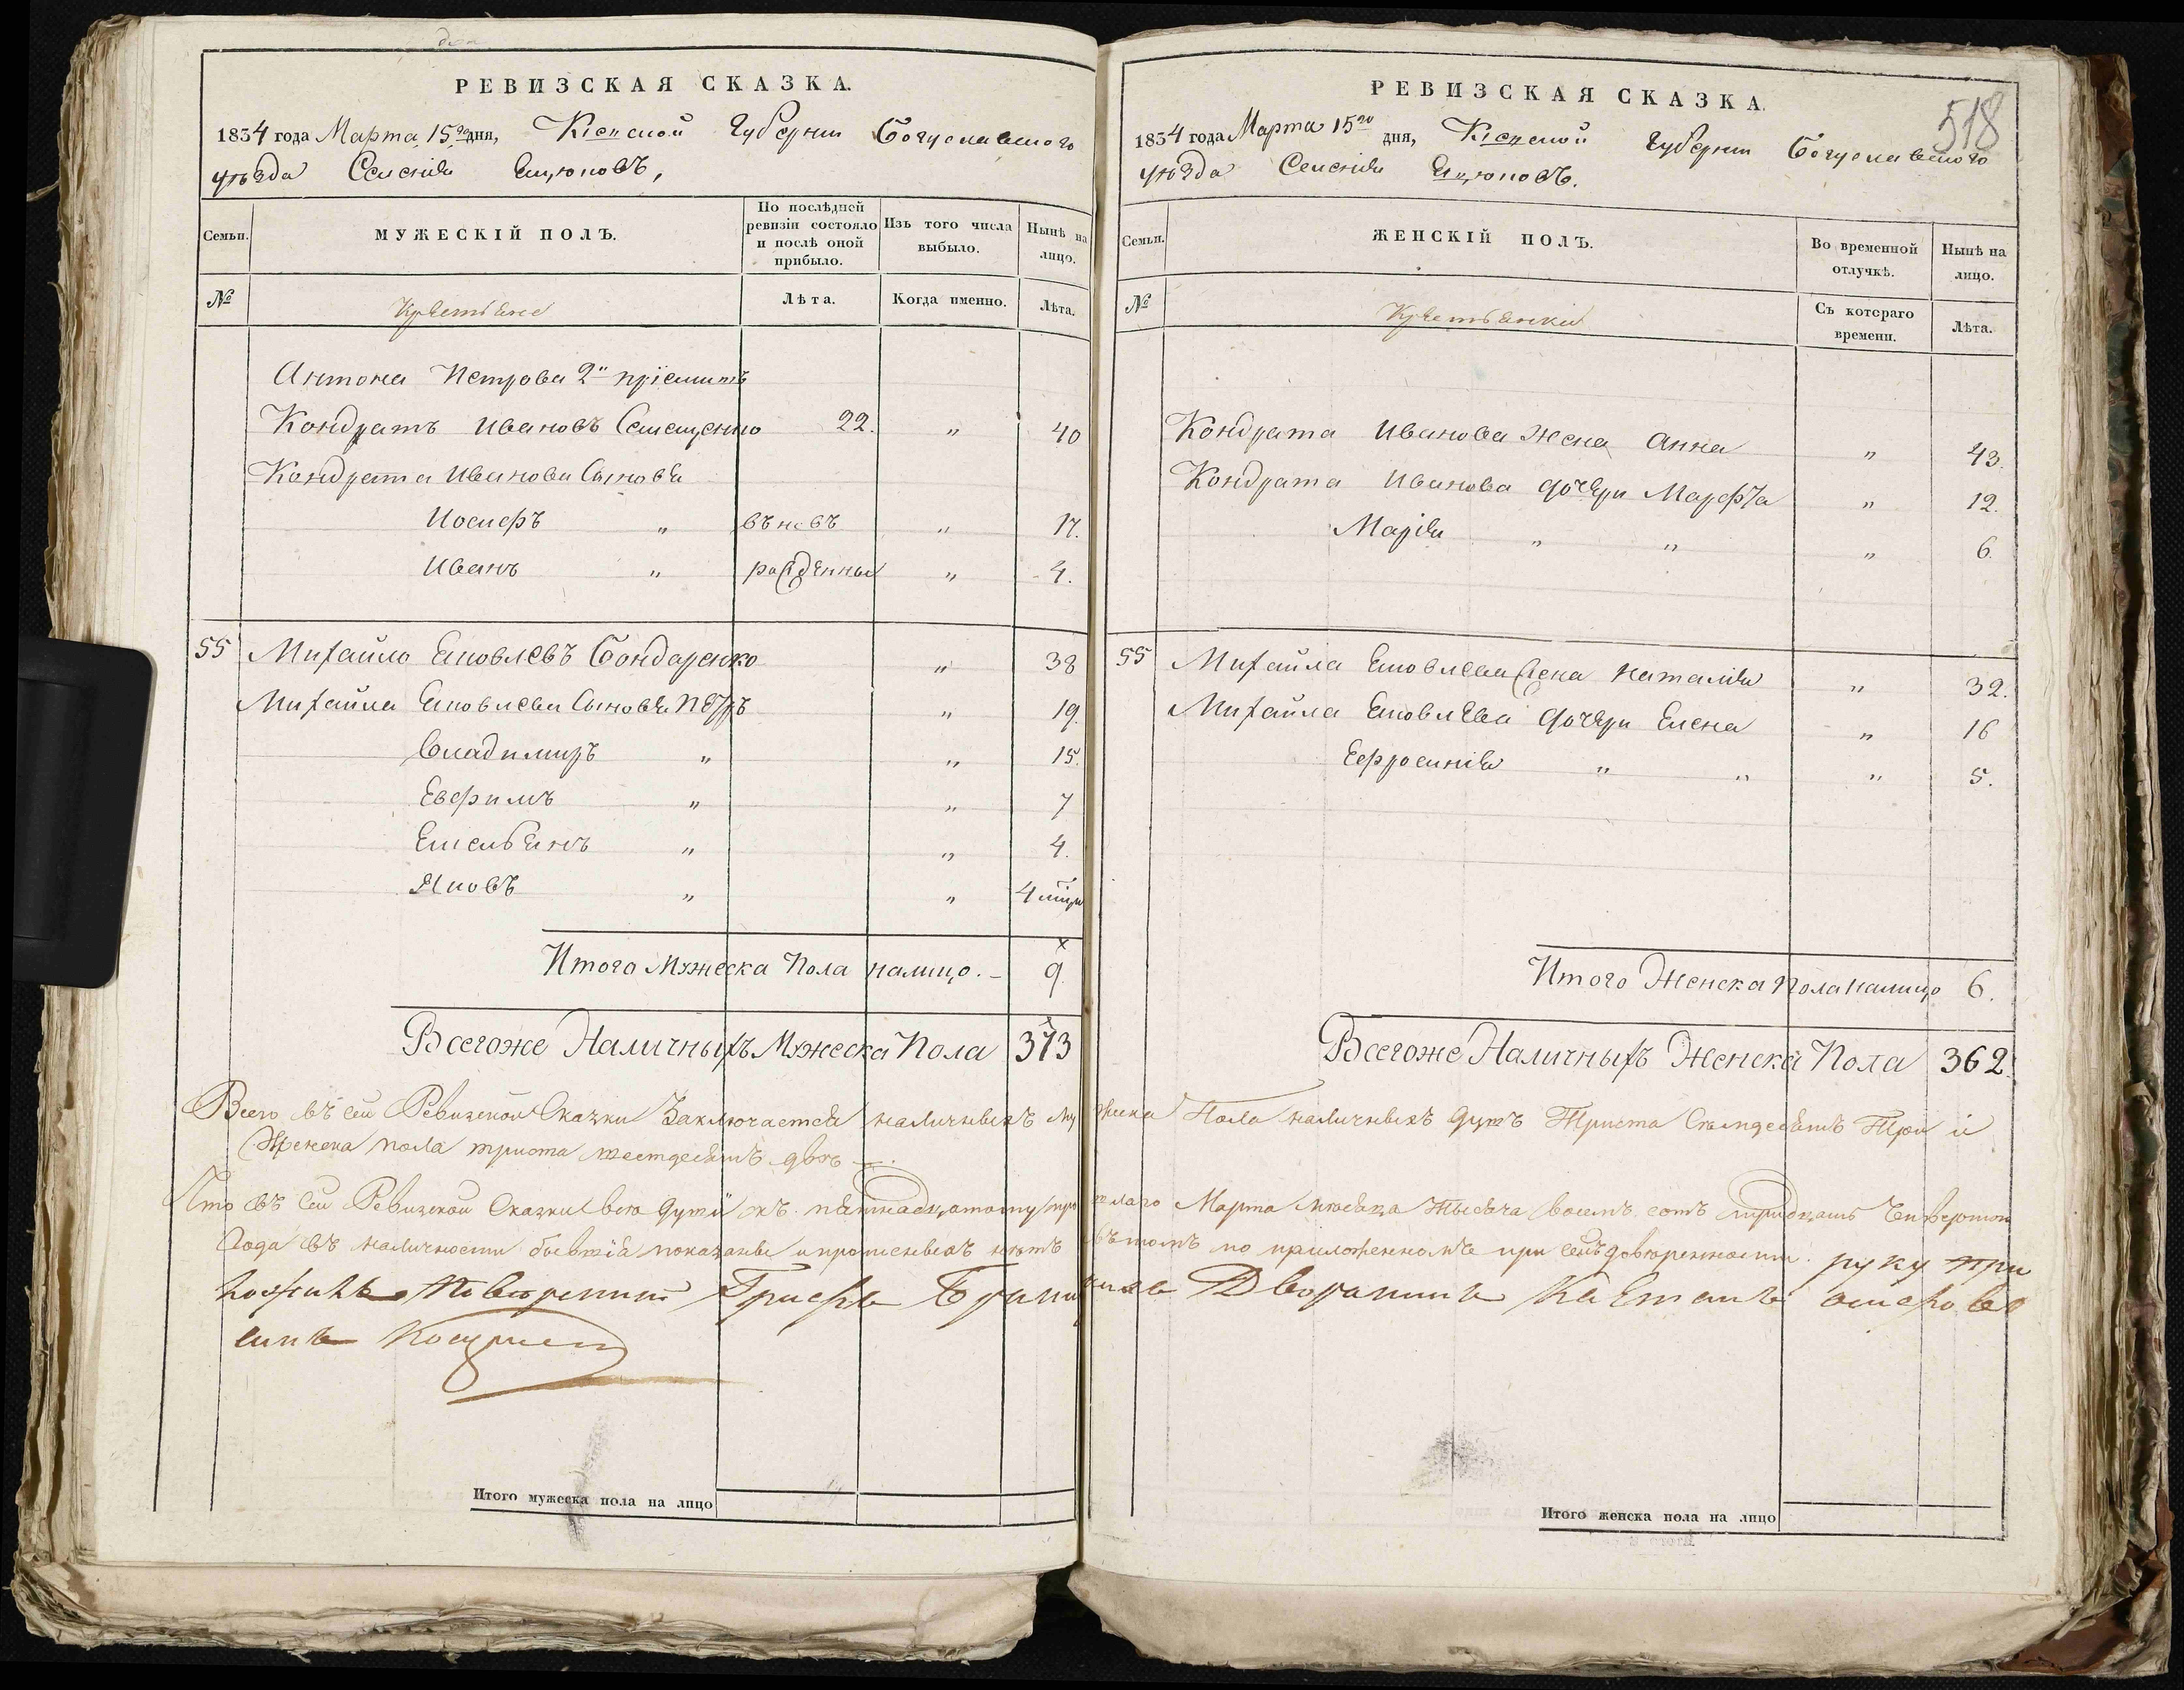 РЕВИЗСКАЯ СКАЗКА.
1834 года Марта 15го дня, Кіевской Губерніи Богуславского
уѣзда Селенія Яцюковъ,
Семьи.
МУЖЕСКІЙ ПОЛЪ.
По послѣдней ревизіи состояло и послѣ оной прибыло.
Изъ того числа выбыло.
Нынѣ на лицо.
№
Крестьяне
Лѣта.
Когда именно.
Лѣта.
Антона Петрова 2й пріемышъ
Кондратъ Ивановъ Семещенко 22. " 40
Кондрата Иванова Сыновья
Іосифъ " въ новъ " 17.
Иванъ " рожденные " 4.
55 Михайло Яковлевъ Бондаренко " 38
Михайла Яковлева Сыновья Петръ " 19.
Владимиръ " " 15.
Евфимъ " " 7
Емельянъ " " 4.
Яковъ " " 4 мѣся
Итого Мужеска Пола налицо. - 9.
Всегоже Наличныхъ Мужеска Пола 373
Итого мужеска пола на лицо
518
РЕВИЗСКАЯ СКАЗКА.
1834 года Марта 15го дня, Кіевской Губерніи Богуславского
уѣзда Селенія Яцюковъ.
Семьи.
ЖЕНСКІЙ ПОЛЪ.
Во временной отлучкѣ.
Нынѣ на лицо.
№
Крестьянки
Съ котораго времени.
Лѣта.
Кондрата Иванова жена Анна " 43.
Кондрата Иванова дочери Марфа " 12.
Марія " " " 6.
55 Михайла Яковлева жена Наталія " 32.
Михайла Яковлева дочери Елена " 16
Ефросинія " " " 5.
Итого Женска Пола налицо 6.
Всегоже Наличныхъ Женска Пола 362.
Всего въ сей Ревизской Сказки Заключается наличныхъ мужеска Пола наличныхъ душъ Триста Семьдесятъ Три и
Женска пола триста шестдесятъ двѣ
Что въ сей Ревизской Сказки всѣ души къ пятнадцатому числу Марта мѣсяца тысяча восемъ сотъ тридцать Четвертого
Года въ наличности бывшія показаны и прописныхъ нѣтъ въ томъ по приложенной при семъ довѣренности руку при
ложилъ Повѣренный Графа Браницкаго Дворянинъ Каетанъ
сынъ
Итого женска пола на лицо